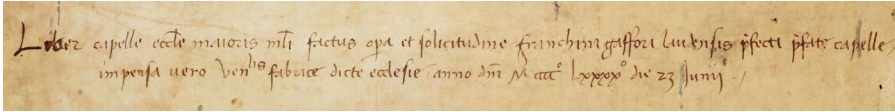 Liber capelle eccle maioris mli factus opa et solicitudine franchini gaffori laudensis pfecti pfate capelle
impensa vero Venlis fabrice dicte ecclesie anno dni M cccc° Lxxxx° die 23 Junii